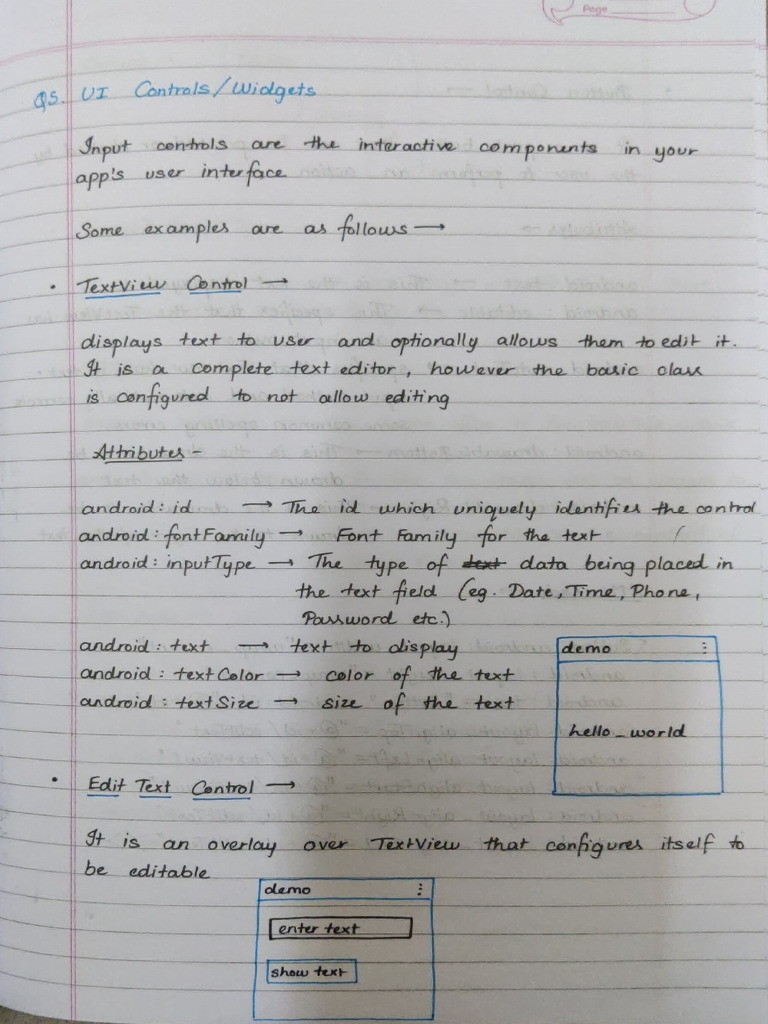 Page
Q5. UI Controls/Widgets
Input controls are the interactive components in your
app's user interface
Some examples are as follows →
• TextView Control →
displays text to user and optionally allows them to edit it.
It is a complete text editor, however the basic class
is configured to not allow editing
Attributes -
android: id → The id which uniquely identifies the control
android: fontFamily → Font Family for the text
android: inputType → The type of text data being placed in
the text field (eg. Date, Time, Phone,
Password etc.)
android: text → text to display
android: textColor → color of the text
android: textSize → size of the text
demo ⋮
hello_world
• Edit Text Control →
It is an overlay over TextView that configures itself to
be editable
demo ⋮
enter text
show text